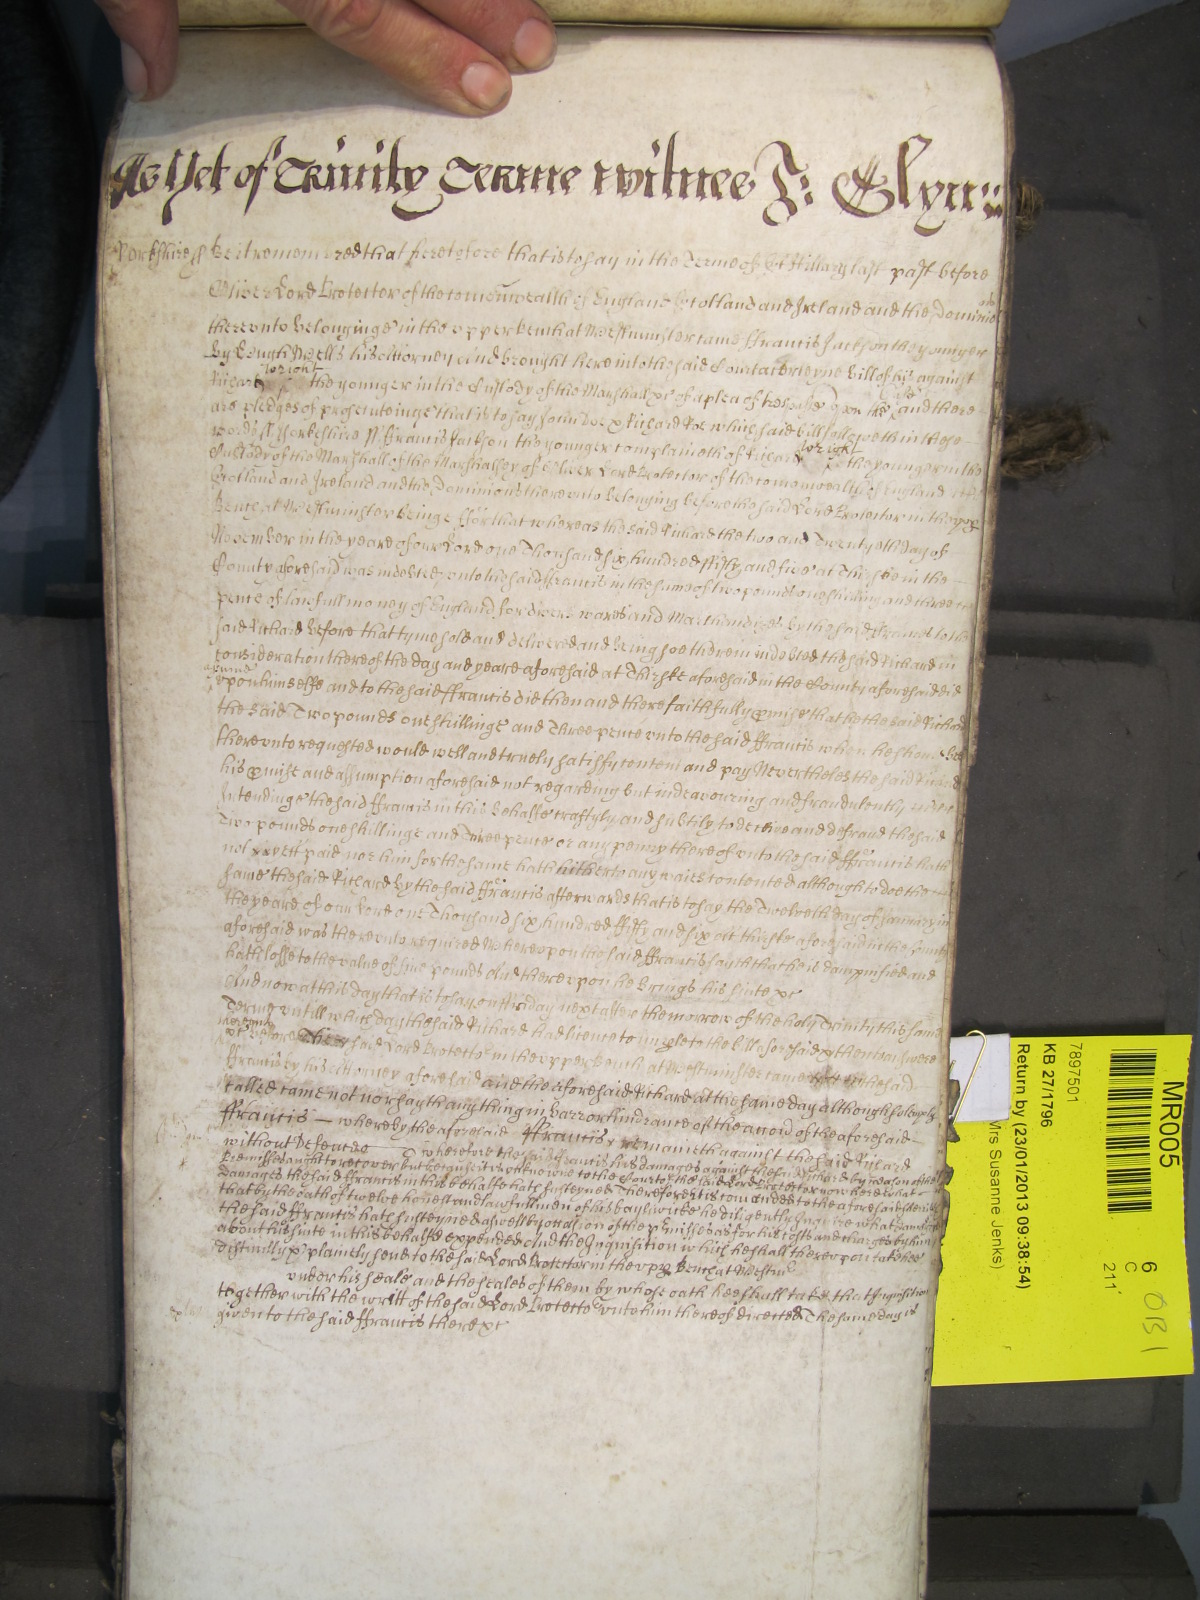 As Yet of Trinity Terme witnes J: Glynn
Yorkshire ss Be it remembred that heretofore that is to say in the Terme of St Hillary last past before
Oliver Lord Protector of the comonwealth of England Scotland and Ireland and the Dominions
therevnto belonginge in the vpper bench at Westminster came ffrancis Jackson the younger
by Wells his Attorney And brought here into the said Court then Bill of his against
Richard Wright the younger in the Custody of the Marshall &c of a plea of trespas vpon the Case And there
are pledges of prosecuteinge that is to say John Doe & Richard Roe which said bill followeth in these
words ss Yorkeshire ss ffrancis Jackson the younger complaineth of Richard Wright the younger in the
Custody of the Marshall of the Marshalsey of Oliver Lord Protector of the comonwealth of England
Scotland and Ireland and the Dominions therevnto belonging before the said Lord Protector in the vpper
Bench at Westminster beinge ffor that whereas the said Richard the two and Twentyeth day of
November in the yeare of our Lord one Thousand six hundred ffifty and five at Thirske in the
County aforesaid was indebted vnto the said ffrancis in the sume of two pounds one shilling and three
pence of lawfull money of England for divers wares and Marchandizes by the said ffrancis to the
said Richard before that tyme sold and delivered and being soe therein indebted the said Richard in
consideration thereof the day and yeare aforesaid at Thirske aforesaid in the County aforesaid did
assume
vpon himselfe and to the said ffrancis did then and there faithfully promise that he the said Richard
the said Two pounds one shillinge and Three pence vnto the said ffrancis when he should bee
therevnto requested would well and truely satisfy content and pay Nevertheles the said Richard
his promise and assumption aforesaid not regarding but indeavouring and fraudulently
Intendinge the said ffrancis in this behalfe craftyly and subtily to deceive and defraud the said
Two pounds one shillinge and Three pence or any penny thereof vnto the said ffrancis hath
not yett paid nor him for the same hath hitherto any waies contented although to doe the
same the said Richard by the said ffrancis afterwards that is to say the Twelveth day of January in
the yeare of our Lord one Thousand six hundred ffifty and six att Thirske aforesaid in the County
aforesaid was therevnto required Wherevpon the said ffrancis sayth that he is dampnified and
hath losse to the value of five pounds And therevpon he brings his suite &c
And now at this day that is to say on ffriday next after the morrow of the holy Trinity this same
Terme vntill which day the said Richard had licence to imparle to the bill aforesaid & then to answere
&c before the said Lord Protector in the vpper bench at Westminster came the said
ffrancis by his Attorney aforesaid and the aforesaid Richard at the same day although solempnly
called came not nor sayth any thing in barr or hindrance of the accion of the aforesaid
ffrancis whereby the aforesaid ffrancis remaineth against the said Richard
without defence Wherefore the said ffrancis his damages against the said Richard by reason of the
Premisses ought to recover but because it is vnknowne to the Court of the said Lord Protector now here what
damages the said ffrancis in this behalfe hath susteyned Therefore it is comanded to the aforesaid sheriffe
that by the oath of twelve honest and lawfull men of his baylywicke he diligently Inquire what damages
the said ffrancis hath susteyned aswell by occasion of the premisses as for his costs and charges by him
about his suite in this behalfe expended And the Inquisition which he shall therevpon take hee
distinctly & plainely send to the said Lord Protector in the vpper Bench at Westmr
vnder his seale and the seales of them by whose oath hee shall take that Inquisition
together with the writt of the said Lord Protector vnto him thereof directed The same day is
given to the said ffrancis there &c
MR005
6
C
211
OB1
7897501
KB 27/1796
Return by (23/01/2013 09:38:54)
Mrs Susanne Jenks)